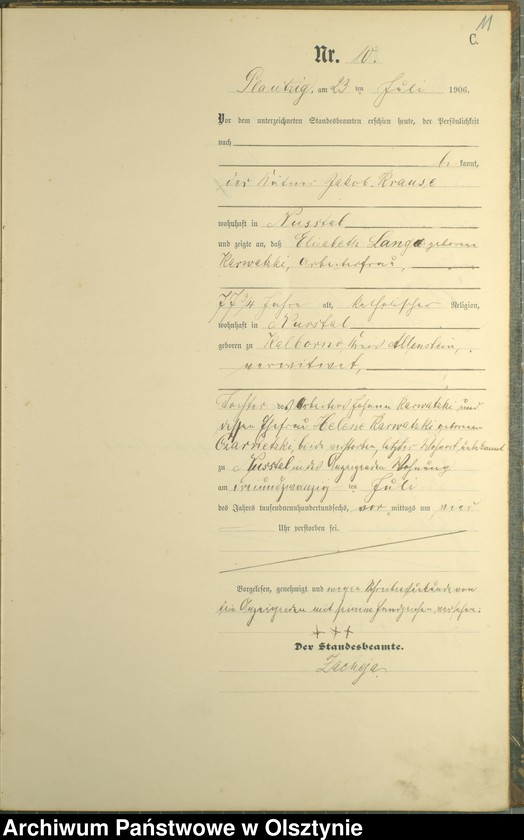 11
C.
Nr. 10.
Plautzig, am 23 ten Juli 1906.
Vor dem unterzeichneten Standesbeamten erschien heute, der Persönlichkeit
nach
be kannt,
der Kätner Jakob Krause
wohnhaft in Nusstal
und zeigte an, daß Elisabeth Lange geborene
Karwatzki, Arbeiterfrau,
77 3/4 Jahre alt, katholischer Religion,
wohnhaft in Nusstal
geboren zu Kelborno, Kreis Allenstein,
verwitwet,
Tochter des Arbeiters Johann Karwatzki und
dessen Ehefrau Helene Karwatzki geborenen
Czarnetzki, beide verstorben, letzter Wohnort unbekannt
zu Nusstal in des Anzeigenden Wohnung
am dreiundzwanzig ten Juli
des Jahres tausendneunhundertsechs, vor mittags um vier
Uhr verstorben sei.
Vorgelesen, genehmigt und wegen Schreibensunkunde von
dem Anzeigenden mit seinem Handzeichen versehen.
+ + +
Der Standesbeamte.
Archiwum Państwowe w Olsztynie